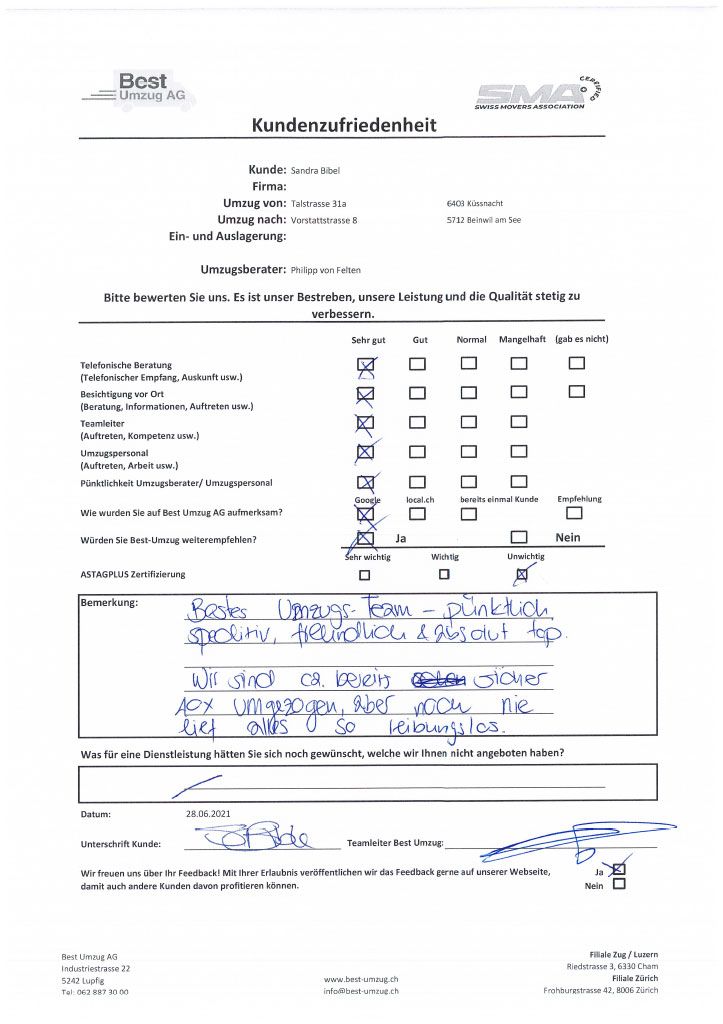 Best
Umzug AG
SMA CERTIFIED
SWISS MOVERS ASSOCIATION
Kundenzufriedenheit
Kunde: Sandra Bibel
Firma:
Umzug von: Talstrasse 31a 6403 Küssnacht
Umzug nach: Vorstattstrasse 8 5712 Beinwil am See
Ein- und Auslagerung:
Umzugsberater: Philipp von Felten
Bitte bewerten Sie uns. Es ist unser Bestreben, unsere Leistung und die Qualität stetig zu
verbessern.
Sehr gut Gut Normal Mangelhaft (gab es nicht)
Telefonische Beratung
(Telefonischer Empfang, Auskunft usw.)
Besichtigung vor Ort
(Beratung, Informationen, Auftreten usw.)
Teamleiter
(Auftreten, Kompetenz usw.)
Umzugspersonal
(Auftreten, Arbeit usw.)
Pünktlichkeit Umzugsberater/ Umzugspersonal
Google local.ch bereits einmal Kunde Empfehlung
Wie wurden Sie auf Best Umzug AG aufmerksam?
Würden Sie Best-Umzug weiterempfehlen? Ja Nein
Sehr wichtig Wichtig Unwichtig
ASTAGPLUS Zertifizierung
Bemerkung: Bestes Umzugs-Team - pünktlich
speditiv, freundlich & absolut top.
Wir sind ca. bereits sicher
10x umgezogen, aber noch nie
lief alles so reibungslos.
Was für eine Dienstleistung hätten Sie sich noch gewünscht, welche wir Ihnen nicht angeboten haben?
Datum: 28.06.2021
Unterschrift Kunde: Teamleiter Best Umzug:
Wir freuen uns über Ihr Feedback! Mit Ihrer Erlaubnis veröffentlichen wir das Feedback gerne auf unserer Webseite, Ja
damit auch andere Kunden davon profitieren können. Nein
Best Umzug AG Filiale Zug / Luzern
Industriestrasse 22 Riedstrasse 3, 6330 Cham
5242 Lupfig www.best-umzug.ch Filiale Zürich
Tel: 062 887 30 00 info@best-umzug.ch Frohburgstrasse 42, 8006 Zürich